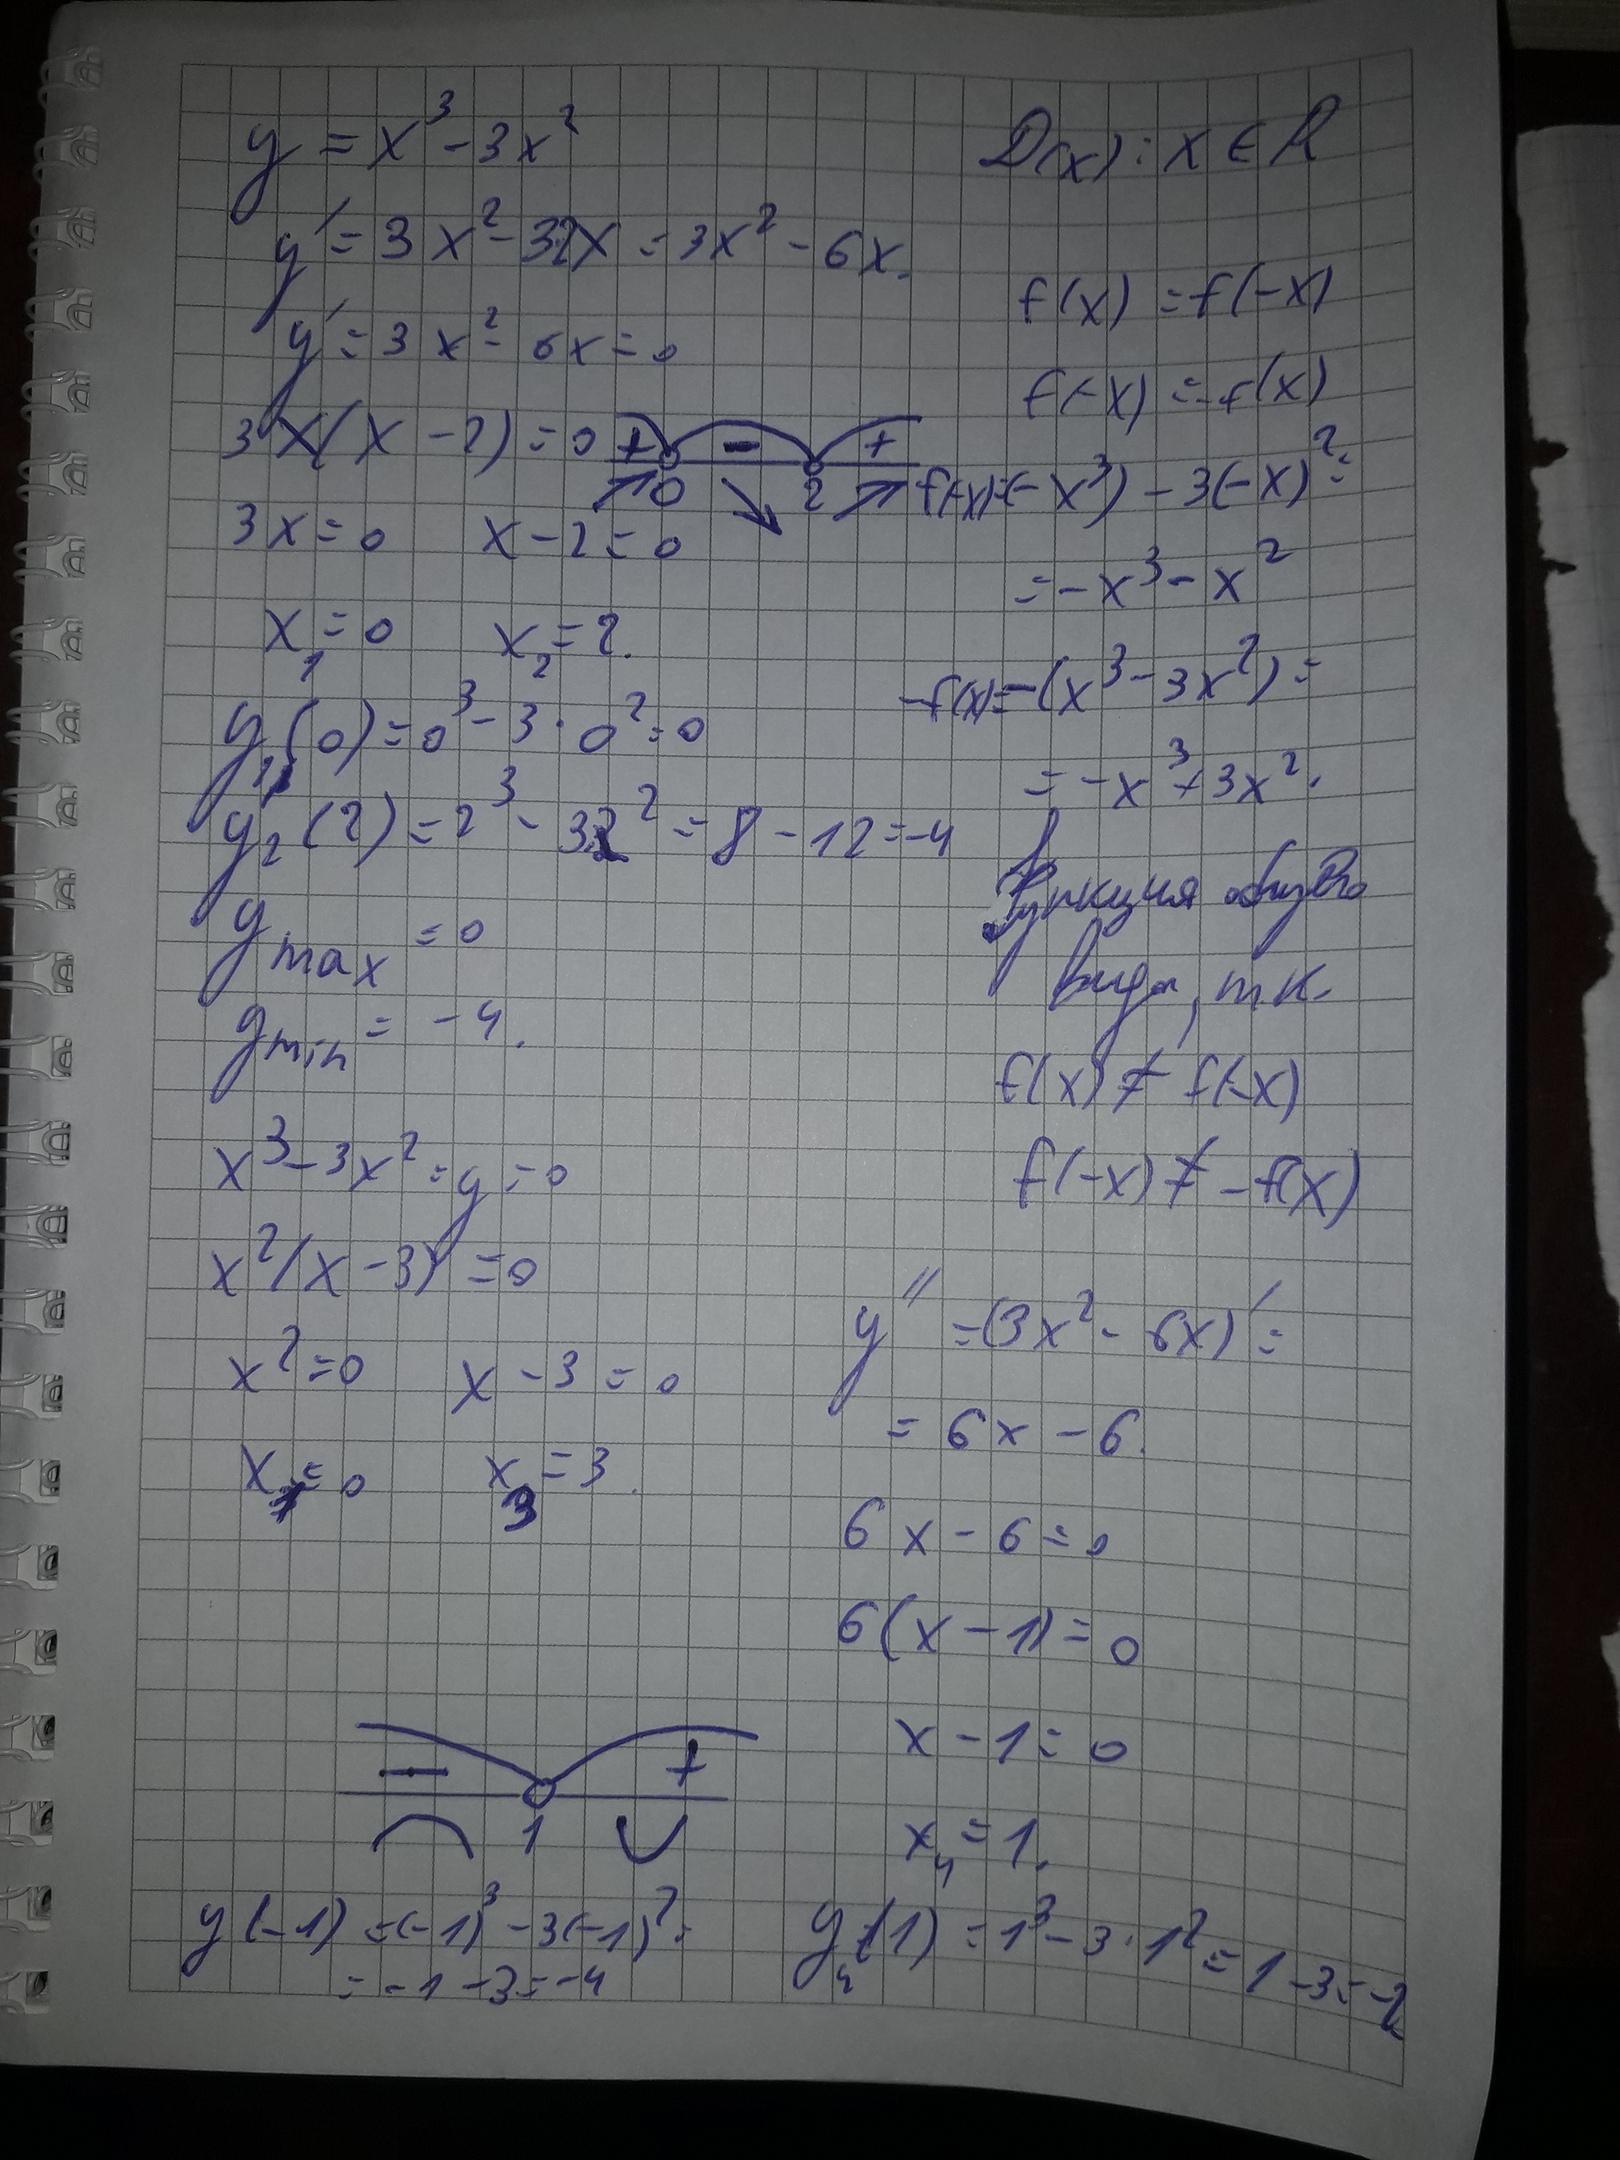 y = x³ - 3x²
y' = 3x² - 3·2x = 3x² - 6x.
y' = 3x² - 6x = 0
3x(x - 2) = 0
+ - +
0 2
3x = 0 x - 2 = 0
x₁ = 0 x₂ = 2.
y₁(0) = 0³ - 3·0² = 0
y₂(2) = 2³ - 3·2² = 8 - 12 = -4
y max = 0
y min = -4.
x³ - 3x² = y = 0
x²(x - 3) = 0
x² = 0 x - 3 = 0
x₁ = 0 x₃ = 3.
- +
1
y(-1) = (-1)³ - 3(-1)² =
= -1 - 3 = -4
D(x): x ∈ R
f(x) = f(-x)
f(-x) = -f(x)
f(-x) = (-x³) - 3(-x)² =
= -x³ - x²
-f(x) = -(x³ - 3x²) =
= -x³ + 3x².
Функция общего
вида, т.к.
f(x) ≠ f(-x)
f(-x) ≠ -f(x)
y'' = (3x² - 6x)' =
= 6x - 6.
6x - 6 = 0
6(x - 1) = 0
x - 1 = 0
x₄ = 1.
y₄(1) = 1³ - 3·1² = 1 - 3 = -2